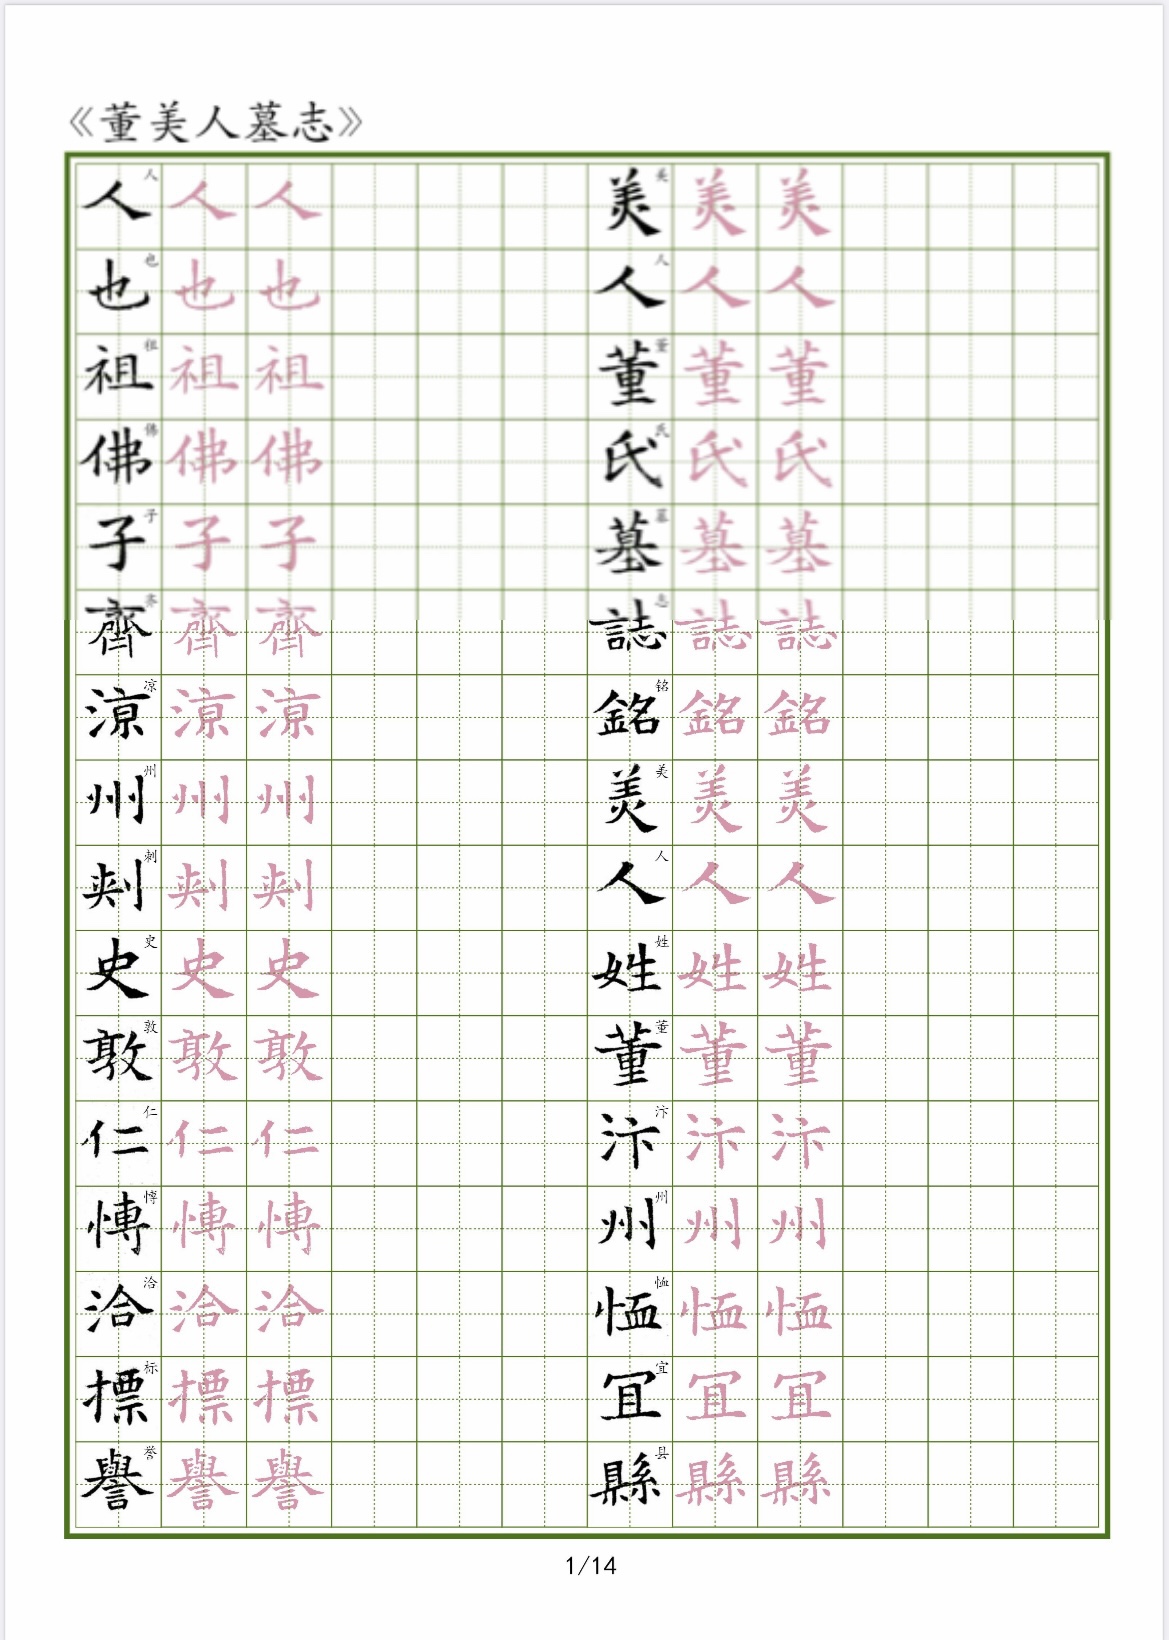 《董美人墓志》
人 人 人 人 美 美 美 美
也 也 也 也 人 人 人 人
祖 祖 祖 祖 董 董 董 董
佛 佛 佛 佛 氏 氏 氏 氏
子 子 子 子 墓 墓 墓 墓
齊 齐 齊 齊 誌 志 誌 誌
涼 凉 涼 涼 銘 铭 銘 銘
州 州 州 州 美 美 美 美
刺 刺 刺 刺 人 人 人 人
史 史 史 史 姓 姓 姓 姓
敦 敦 敦 敦 董 董 董 董
仁 仁 仁 仁 汴 汴 汴 汴
愽 愽 愽 愽 州 州 州 州
洽 洽 洽 洽 恤 恤 恤 恤
標 标 標 標 宜 宜 宜 宜
譽 誉 譽 譽 縣 县 縣 縣
1/14